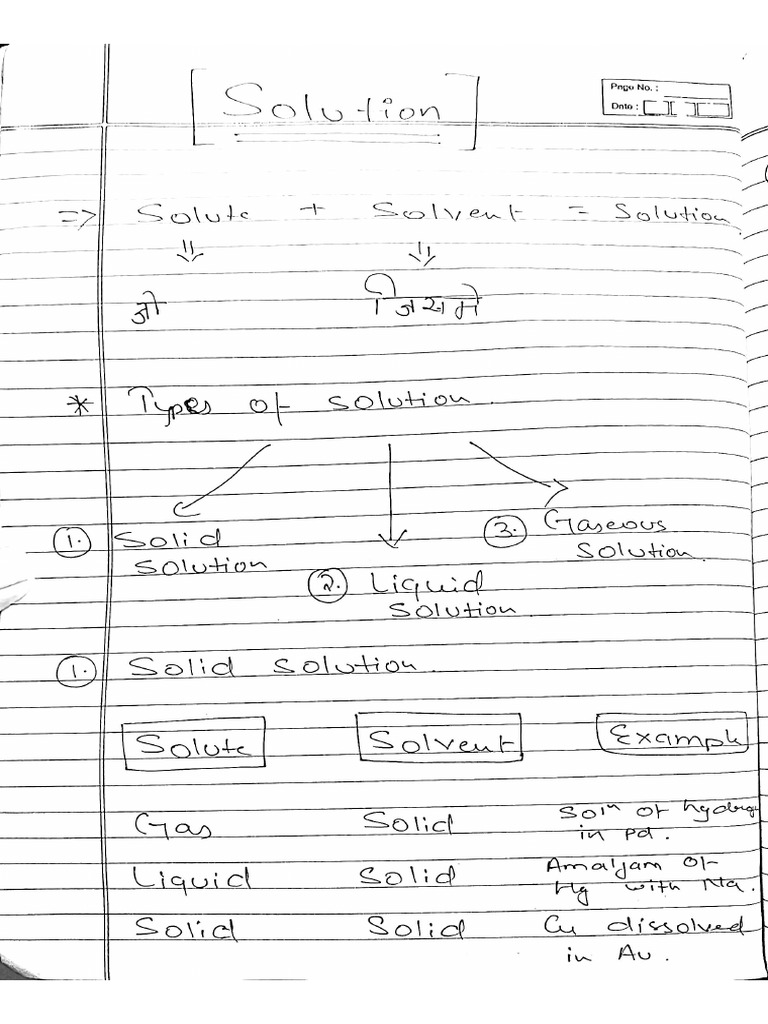 [Solution]
Page No. :
Date :
=> Solute + Solvent = Solution
⇓ ⇓
जो जिसमे
* Types of solution.
1. Solid solution
3. Gaseous solution.
2. Liquid solution.
1. Solid solution.
Solute Solvent Example
Gas Solid Solⁿ of hydroge
in pd.
Liquid Solid Amaljam of
Hg with Na.
Solid Solid Cu dissolved
in Au.